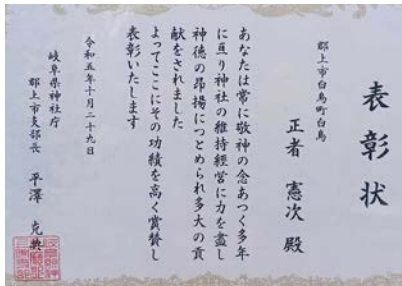 表彰状
郡上市白鳥町白鳥
正者 憲次 殿
あなたは常に敬神の念あつく多年
に亘り神社の維持経営に力を尽し
神徳の昂揚につとめられ多大の貢
献をされました
よってここにその功績を高く賞賛し
表彰いたします
令和五年十月二十九日
岐阜県神社庁
郡上市支部長 平澤 克典